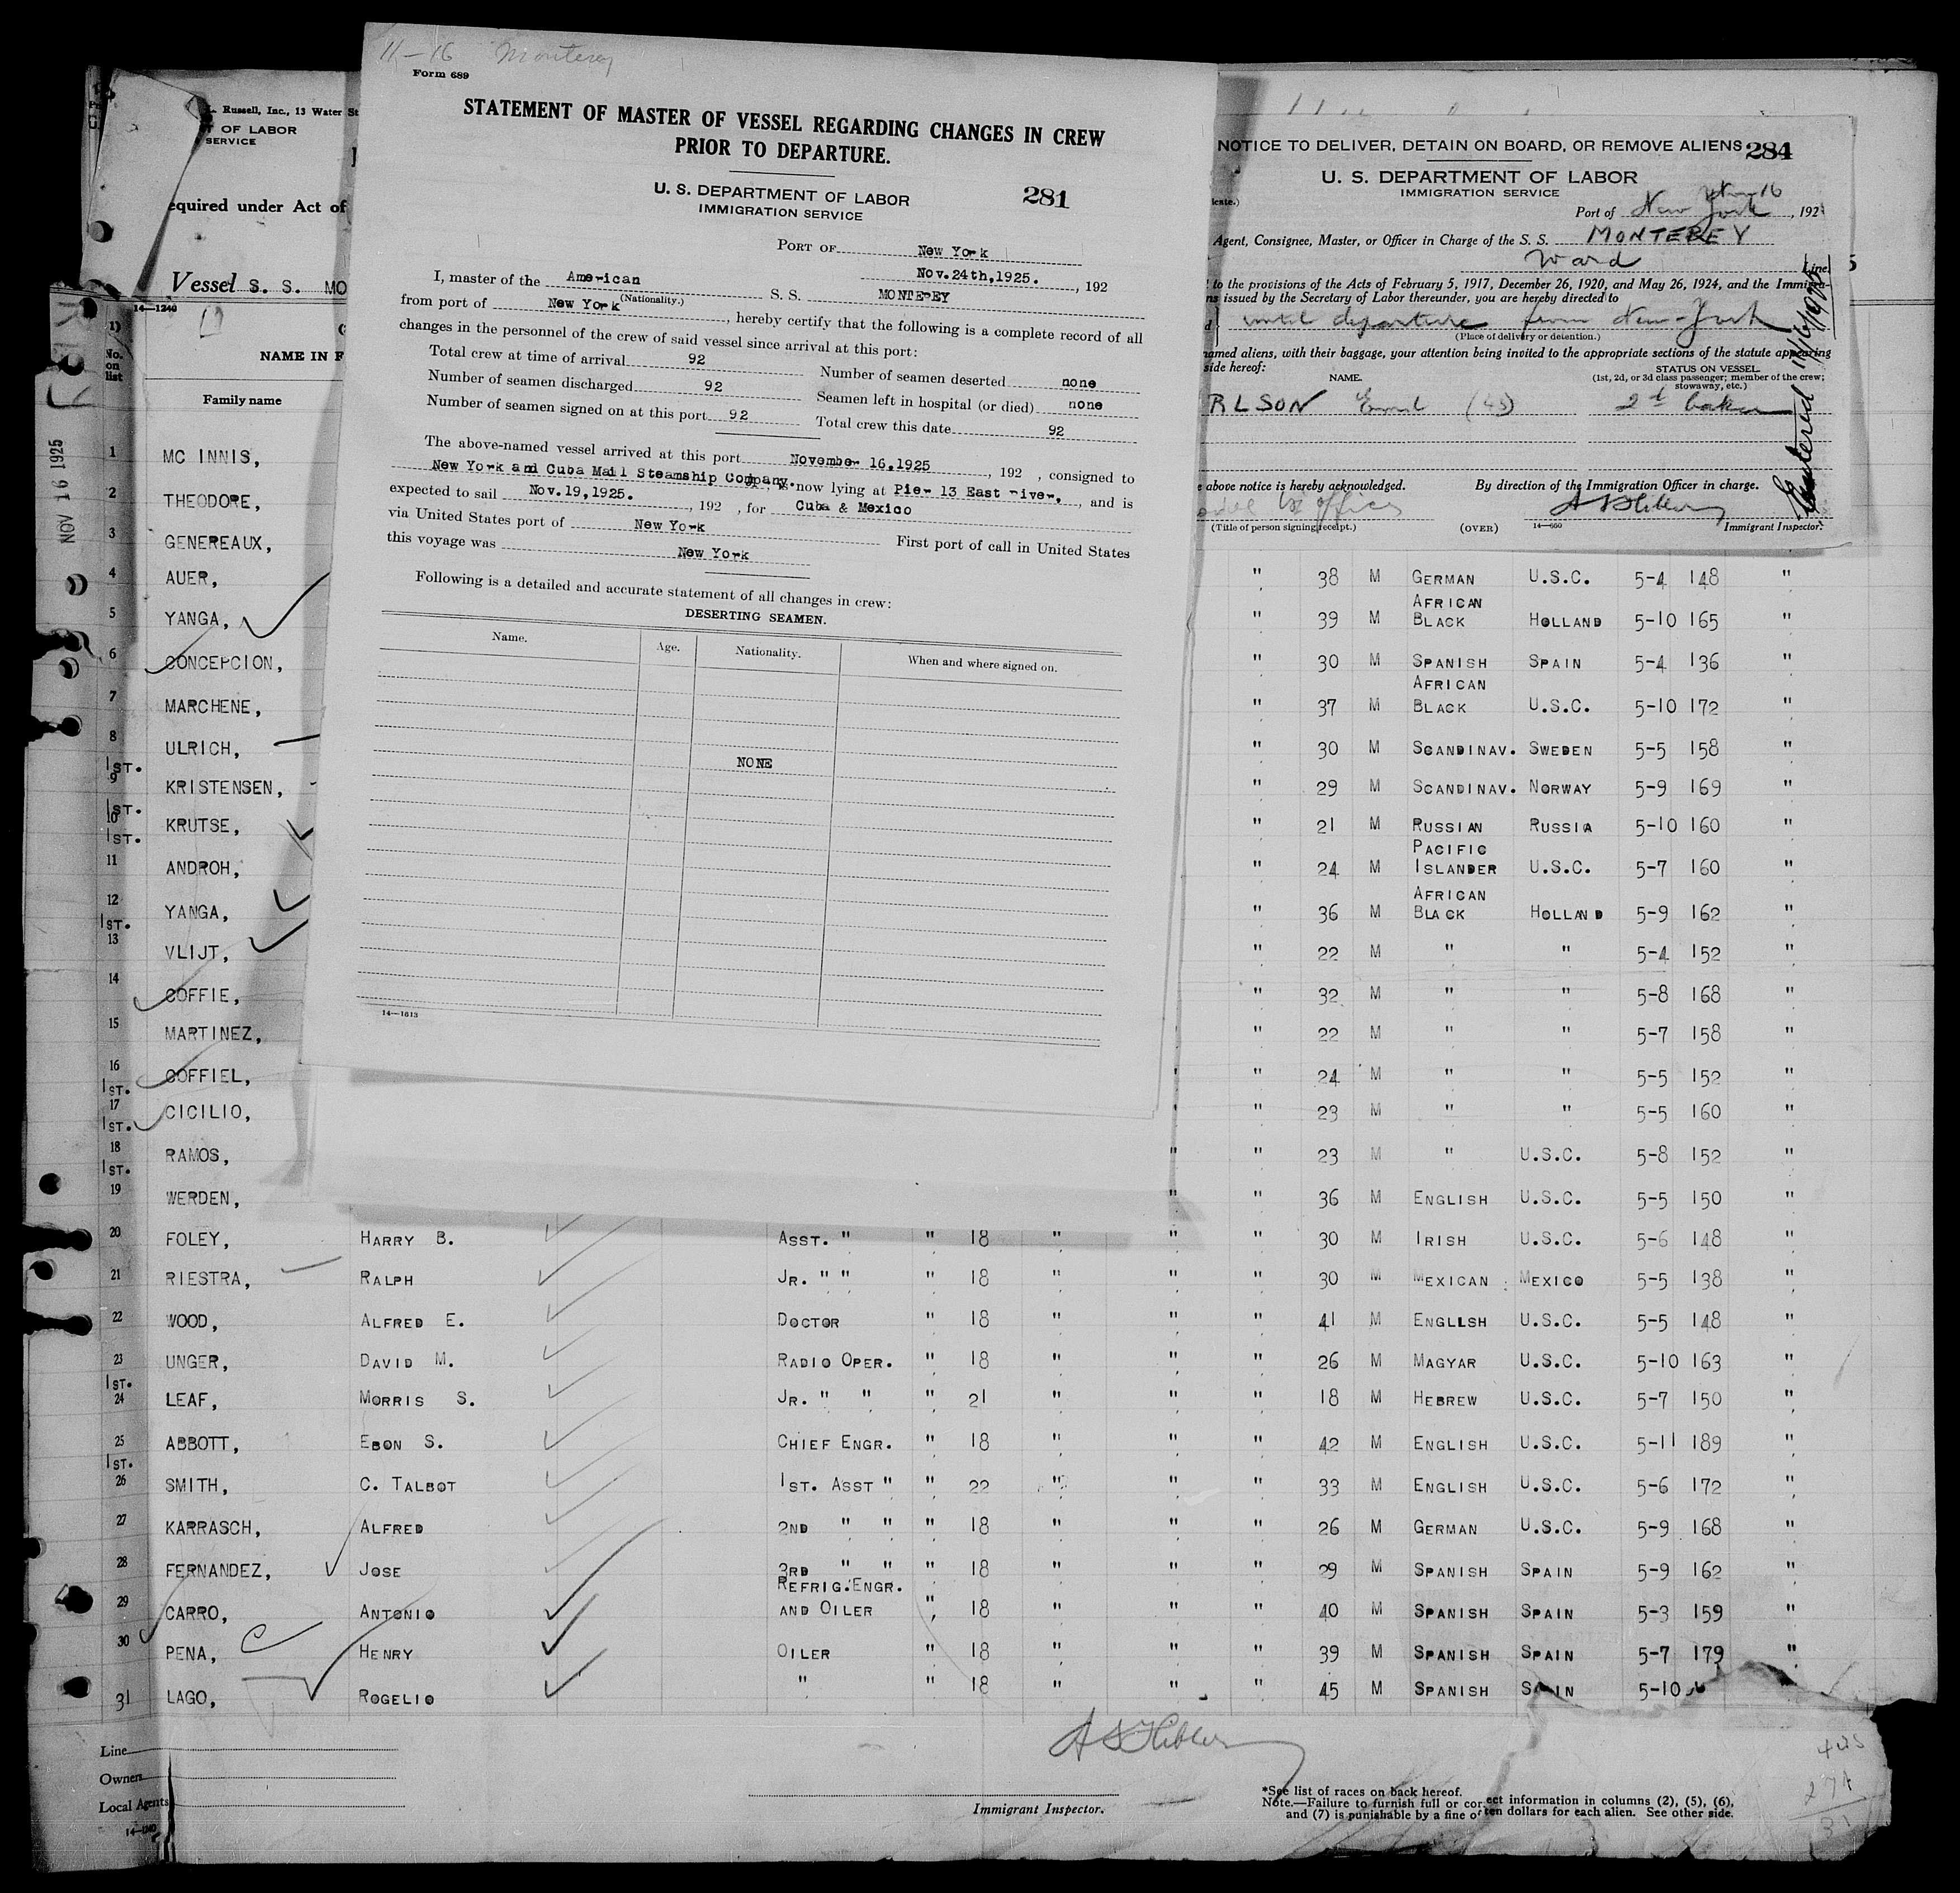 11-16 Monterey
Form 689
STATEMENT OF MASTER OF VESSEL REGARDING CHANGES IN CREW
PRIOR TO DEPARTURE.
U. S. DEPARTMENT OF LABOR
IMMIGRATION SERVICE
281
PORT OF New York
Nov.24th,1925. , 192
I, master of the American S. S. MONTEREY
(Nationality.)
from port of New York , hereby certify that the following is a complete record of all
changes in the personnel of the crew of said vessel since arrival at this port:
Total crew at time of arrival 92 Number of seamen deserted none
Number of seamen discharged 92 Seamen left in hospital (or died) none
Number of seamen signed on at this port 92 Total crew this date 92
The above-named vessel arrived at this port November 16,1925 , 192 , consigned to
New York and Cuba Mail Steamship Company. , is now lying at Pier 13 East river, , and is
expected to sail Nov.19,1925. , 192 , for Cuba & Mexico
via United States port of New York First port of call in United States
this voyage was New York
Following is a detailed and accurate statement of all changes in crew:
DESERTING SEAMEN.
Name. Age. Nationality. When and where signed on.
NONE
14—1613
NOTICE TO DELIVER, DETAIN ON BOARD, OR REMOVE ALIENS 284
U. S. DEPARTMENT OF LABOR
IMMIGRATION SERVICE
Port of New York , 192
Agent, Consignee, Master, or Officer in Charge of the S. S. MONTEREY
Ward
Line.
to the provisions of the Acts of February 5, 1917, December 26, 1920, and May 26, 1924, and the Immigra-
ns issued by the Secretary of Labor thereunder, you are hereby directed to
until departure from New-York
(Place of delivery or detention.)
named aliens, with their baggage, your attention being invited to the appropriate sections of the statute appearing
side hereof:
NAME. STATUS ON VESSEL
(1st, 2d, or 3d class passenger; member of the crew; stowaway, etc.)
RLSON Emil (43) 2d baker
Entered 11/16/1925
e above notice is hereby acknowledged. By direction of the Immigration Officer in charge.
office
(Title of person signing receipt.) (OVER) 14—560 Immigrant Inspector.
L. Russell, Inc., 13 Water St
T OF LABOR
SERVICE
equired under Act of
Vessel S. S. MO
14—1240
(1)
No. on list
NAME IN F
Family name
NOV 16 1925
1 MC INNIS,
2 THEODORE,
3 GENEREAUX,
4 AUER, " 38 M GERMAN U.S.C. 5-4 148 "
5 YANGA, " 39 M AFRICAN BLACK HOLLAND 5-10 165 "
6 CONCEPCION, " 30 M SPANISH SPAIN 5-4 136 "
7 MARCHENE, " 37 M AFRICAN BLACK U.S.C. 5-10 172 "
8 ULRICH, " 30 M SCANDINAV. SWEDEN 5-5 158 "
1ST. 9 KRISTENSEN, " 29 M SCANDINAV. NORWAY 5-9 169 "
1ST. 10 KRUTSE, " 21 M RUSSIAN RUSSIA 5-10 160 "
1ST. 11 ANDROH, " 24 M PACIFIC ISLANDER U.S.C. 5-7 160 "
12 YANGA, " 36 M AFRICAN BLACK HOLLAND 5-9 162 "
1ST. 13 VLIJT, " 22 M " " 5-4 152 "
14 COFFIE, " 32 M " " 5-8 168 "
15 MARTINEZ, " 22 M " " 5-7 158 "
16 COFFIEL, " " 24 M " " 5-5 152 "
1ST. 17 CICILIO, " " 23 M " " 5-5 160 "
1ST. 18 RAMOS, " " 23 M " U.S.C. 5-8 152 "
1ST. 19 WERDEN, " " 36 M ENGLISH U.S.C. 5-5 150 "
20 FOLEY, HARRY B. ASST. " " 18 " " " 30 M IRISH U.S.C. 5-6 148 "
21 RIESTRA, RALPH JR. " " " 18 " " " 30 M MEXICAN MEXICO 5-5 138 "
22 WOOD, ALFRED E. DOCTOR " 18 " " " 41 M ENGLLSH U.S.C. 5-5 148 "
23 UNGER, DAVID M. RADIO OPER. " 18 " " " 26 M MAGYAR U.S.C. 5-10 163 "
1ST. 24 LEAF, MORRIS S. JR. " " " 21 " " " 18 M HEBREW U.S.C. 5-7 150 "
25 ABBOTT, EBON S. CHIEF ENGR. " 18 " " " 42 M ENGLISH U.S.C. 5-11 189 "
1ST. 26 SMITH, C. TALBOT 1ST. ASST " " 22 " " " 33 M ENGLISH U.S.C. 5-6 172 "
27 KARRASCH, ALFRED 2ND " " " 18 " " " 26 M GERMAN U.S.C. 5-9 168 "
28 FERNANDEZ, JOSE 3RD " " " 18 " " " 29 M SPANISH SPAIN 5-9 162 "
29 CARRO, ANTONIO REFRIG. ENGR. AND OILER " 18 " " " 40 M SPANISH SPAIN 5-3 159 "
30 PENA, C HENRY OILER " 18 " " " 39 M SPANISH SPAIN 5-7 179 "
31 LAGO, ROGELIO " " 18 " " " 45 M SPANISH SPAIN 5-10
Line
Owners
Local Agents
14—1240
Immigrant Inspector.
*See list of races on back hereof.
Note.—Failure to furnish full or correct information in columns (2), (5), (6),
and (7) is punishable by a fine of ten dollars for each alien. See other side.